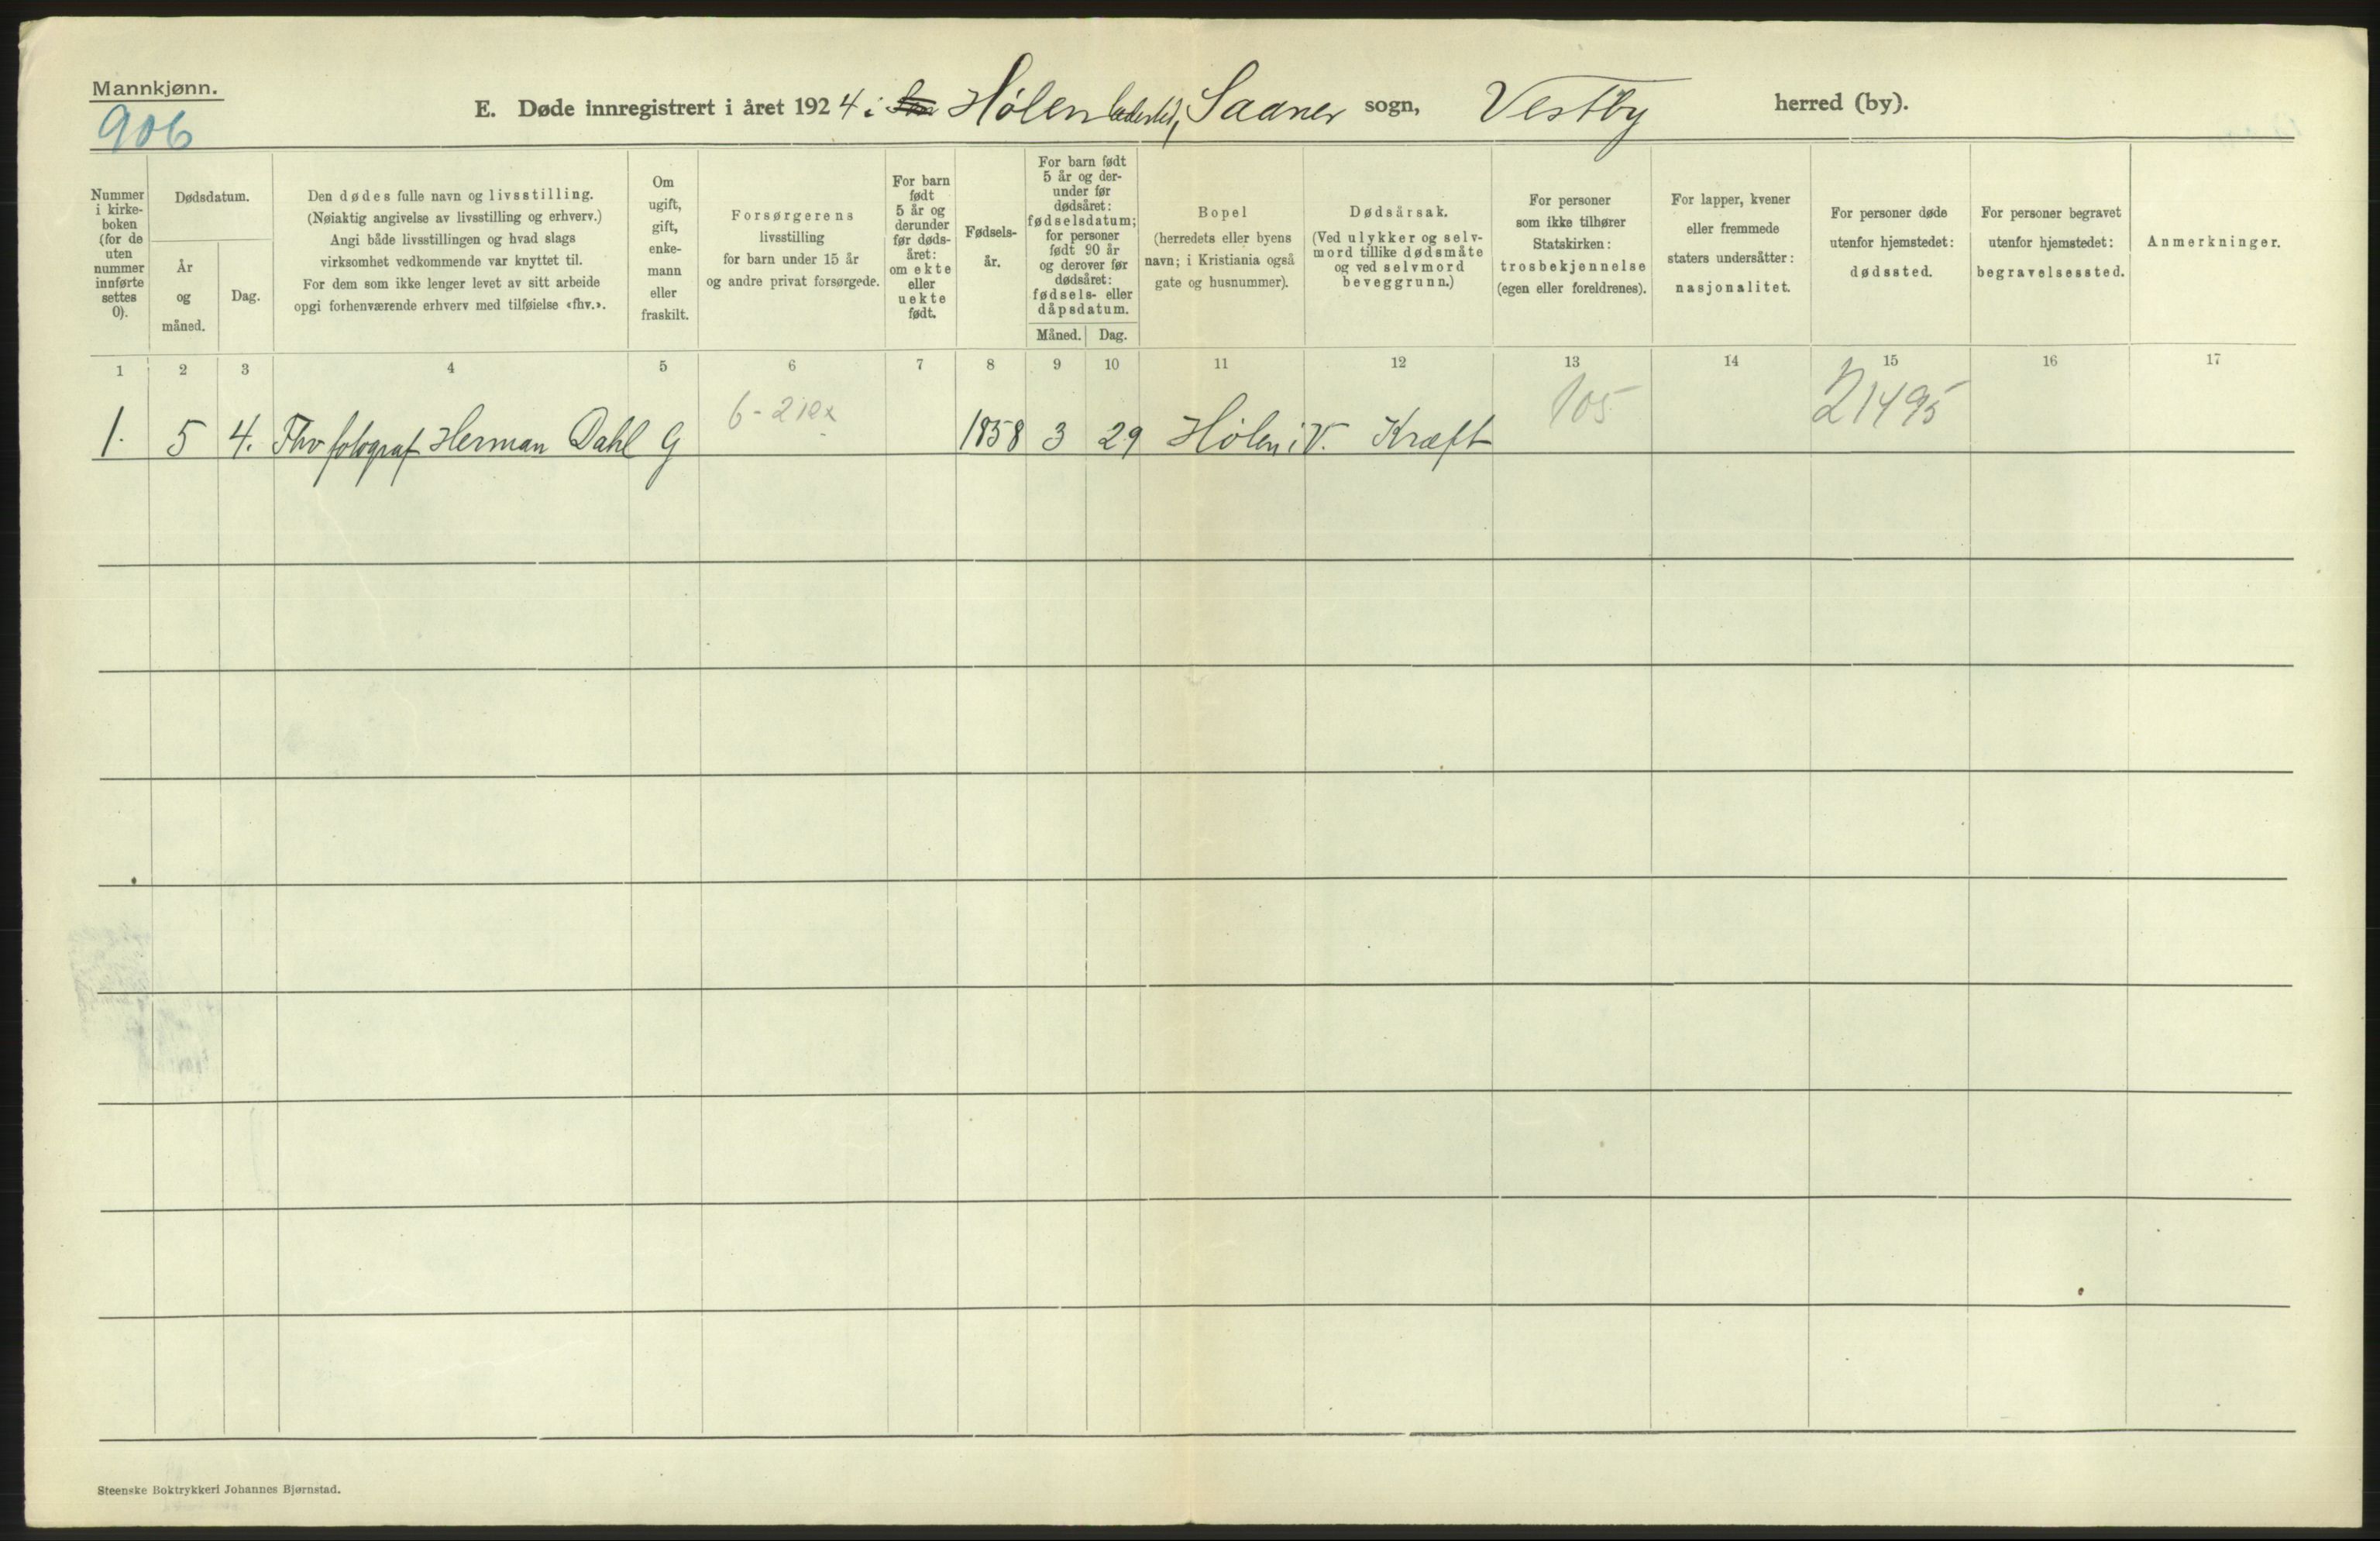 Mannkjønn.
906
E. Døde innregistrert i året 1924 i Hølen Saaner sogn, Vestby herred (by).
Nummer
i kirke-
boken
(for de
uten
nummer
innførte
settes
0).
Dødsdatum.
År
og
måned.
Dag.
Den dødes fulle navn og livsstilling.
(Nøiaktig angivelse av livsstilling og erhverv.)
Angi både livsstillingen og hvad slags
virksomhet vedkommende var knyttet til.
For dem som ikke lenger levet av sitt arbeide
opgi forhenværende erhverv med tilføielse «fhv.».
Om
ugift,
gift,
enke-
mann
eller
fraskilt.
Forsørgerens
livsstilling
for barn under 15 år
og andre privat forsørgede.
For barn
født
5 år og
derunder
før døds-
året:
om ekte
eller
uekte
født.
Fødsels-
år.
For barn født
5 år og der-
under før
dødsåret:
fødselsdatum;
for personer
født 90 år
og derover før
dødsåret:
fødsels- eller
dåpsdatum.
Måned. Dag.
Bopel
(herredets eller byens
navn; i Kristiania også
gate og husnummer).
Dødsårsak.
(Ved ulykker og selv-
mord tillike dødsmåte
og ved selvmord
beveggrunn.)
For personer
som ikke tilhører
Statskirken:
trosbekjennelse
(egen eller foreldrenes).
For lapper, kvener
eller fremmede
staters undersåtter:
nasjonalitet.
For personer døde
utenfor hjemstedet:
dødssted.
For personer begravet
utenfor hjemstedet:
begravelsessted.
Anmerkninger.
1 2 3 4 5 6 7 8 9 10 11 12 13 14 15 16 17
105 21495
1. 5 4. Fhv fotograf Herman Dahl G 1858 3 29 Hølen i V. Kræft
Steenske Boktrykkeri Johannes Bjørnstad.